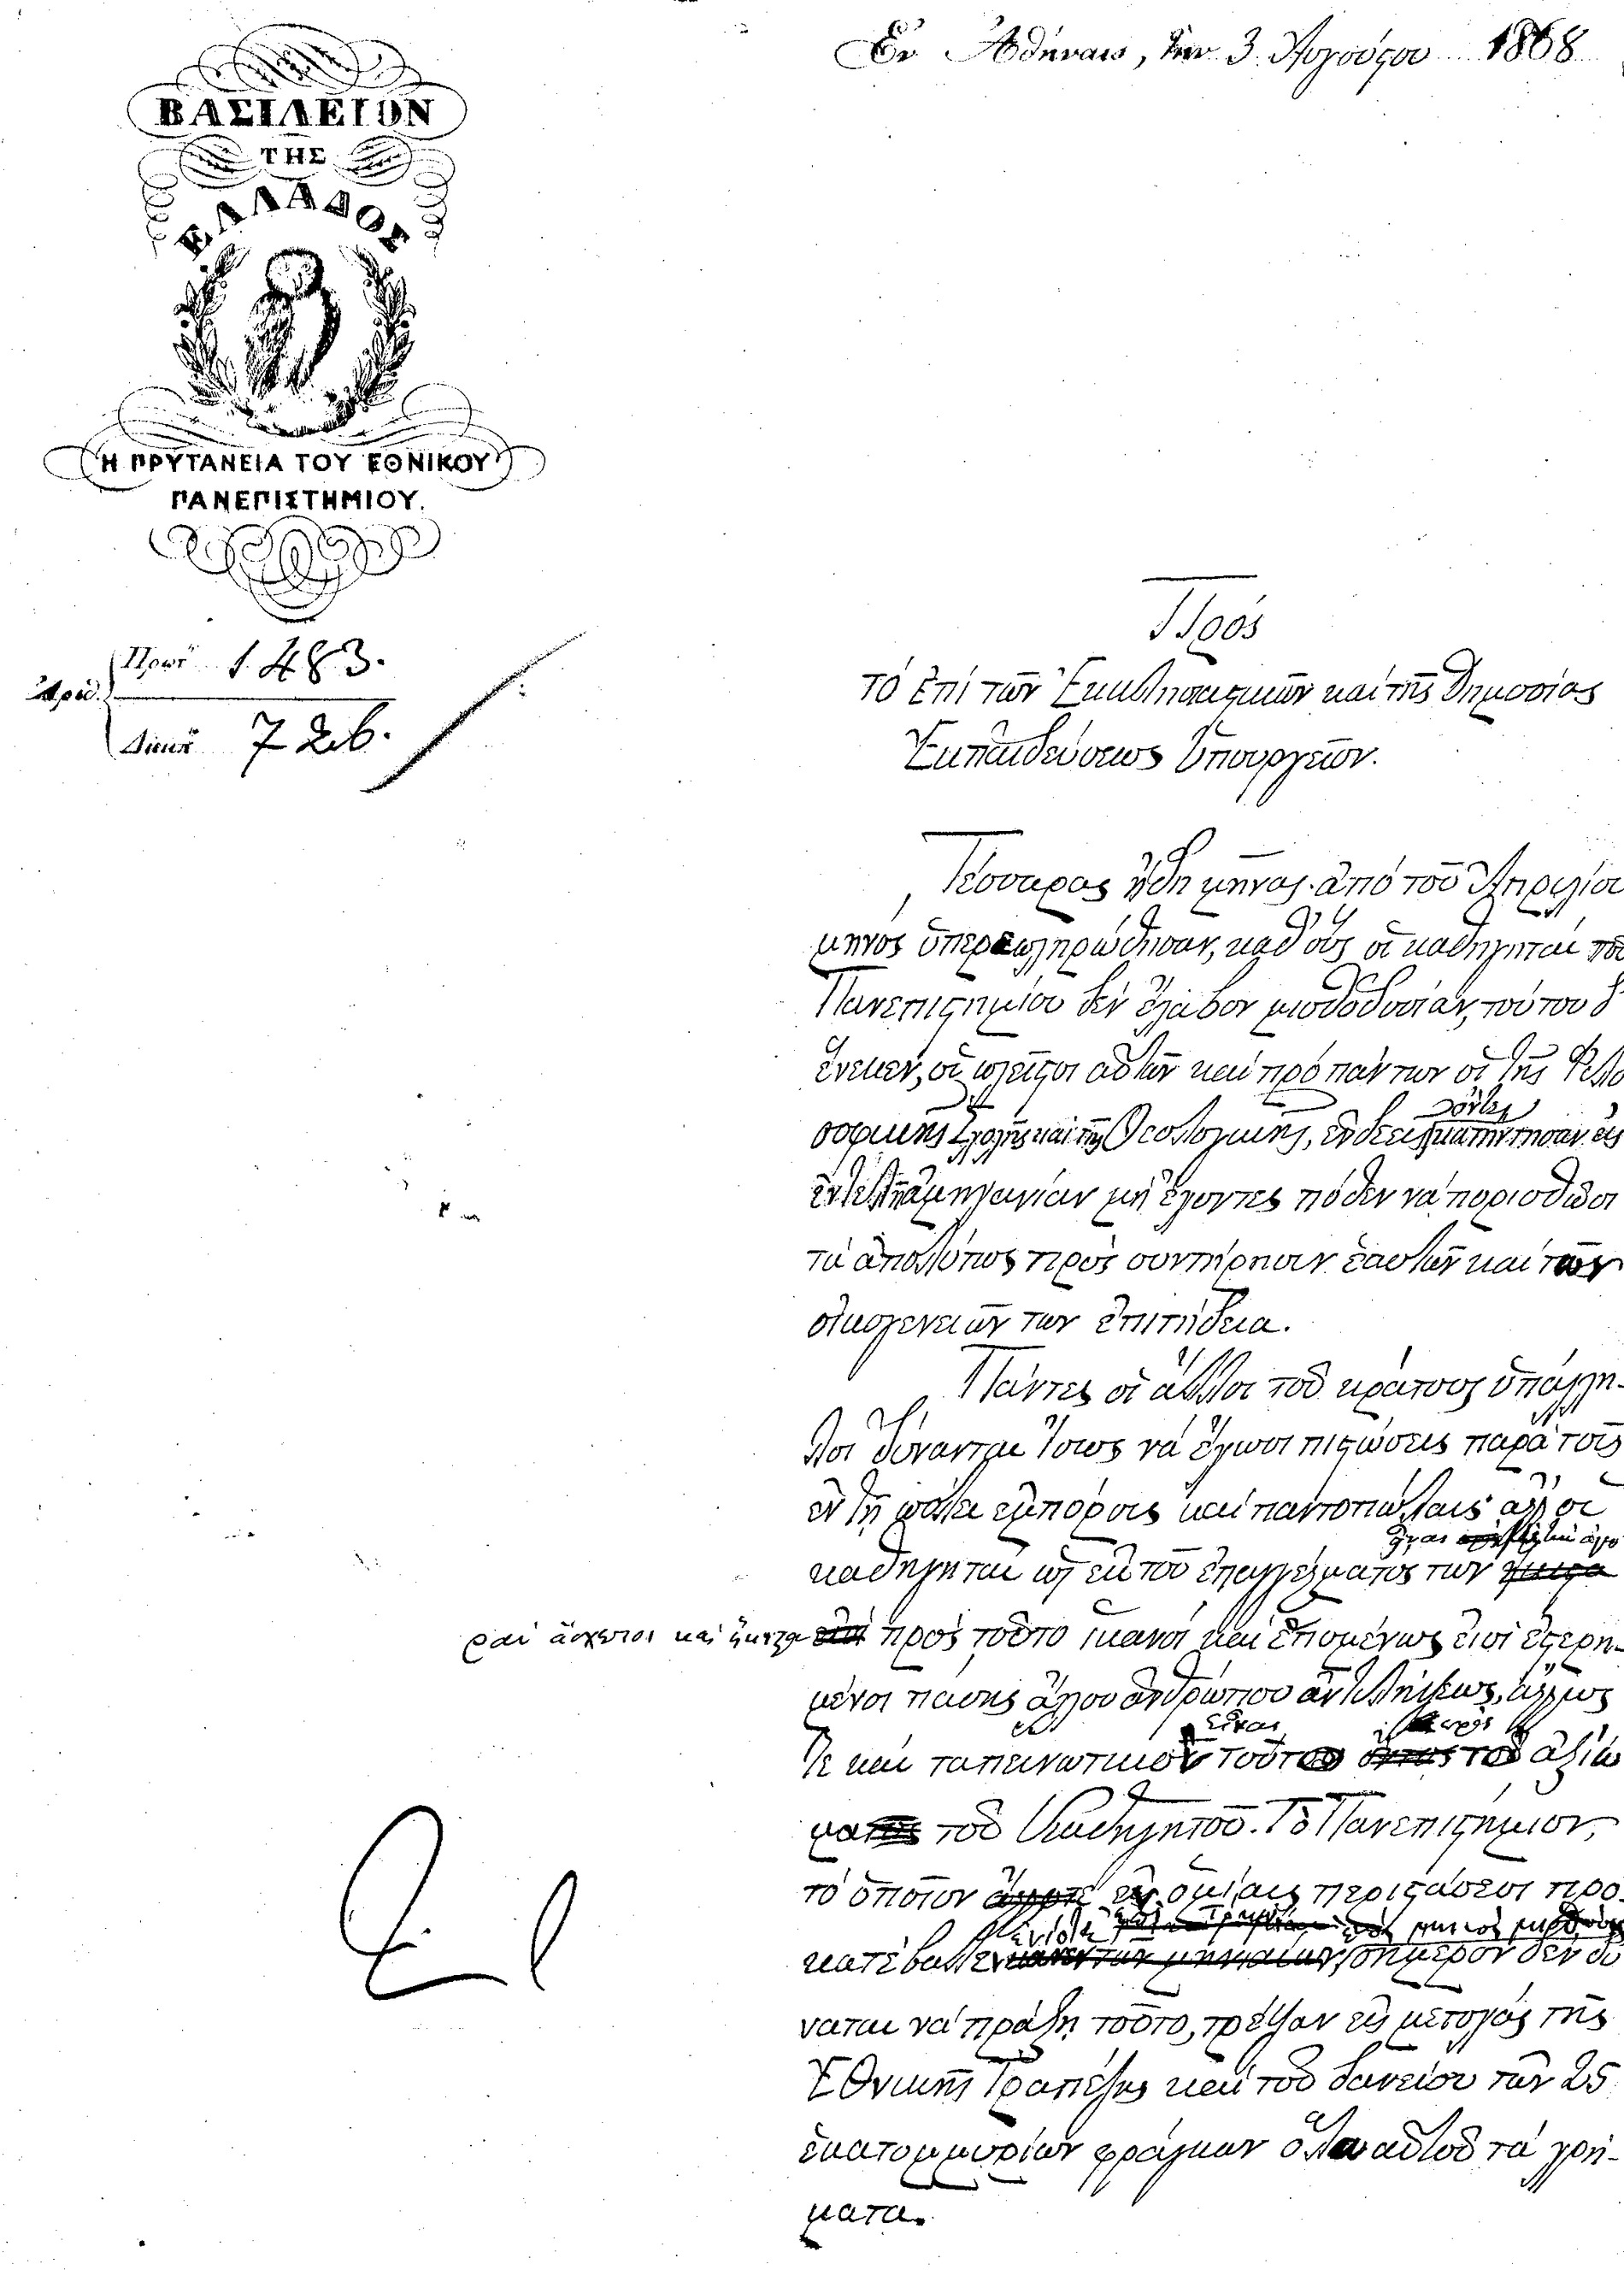 Ἐν Ἀθήναις, τὴν 3 Αὐγούστου 1868
ΒΑΣΙΛΕΙΟΝ
ΤΗΣ
ΕΛΛΑΔΟΣ
Η ΠΡΥΤΑΝΕΙΑ ΤΟΥ ΕΘΝΙΚΟΥ
ΠΑΝΕΠΙΣΤΗΜΙΟΥ.
Ἀριθ.
Πρωτ 1483.
Διεκπ
Πρός
τό ἐπί τῶν Ἐκκλησιαστικῶν καί τῆς δημοσίας
Ἐκπαιδεύσεως Ὑπουργεῖον.
Τέσσαρας ἤδη μῆνας ἀπό τοῦ Ἀπριλίου
μηνός ὑπερεπληρώθησαν, καθ' οὕς οἱ καθηγηταί τοῦ
Πανεπιστημίου δέν ἔλαβον μισθοδοσίαν, τούτου δ'
ἕνεκεν, οἱ πλεῖστοι αὐτῶν καί πρό πάντων οἱ τῆς Φιλο
σοφικῆς Σχολῆς καί τῆς Θεολογικῆς, ἐνδεεῖς ὄντες κατήντησαν εἰς
ἐντελῆ ἀμηχανίαν μή ἔχοντες πόθεν νά πορισθῶσι
τά ἀπολύτως πρός συντήρησιν ἑαυτῶν καί τῶν
οἰκογενειῶν των ἐπιτήδεια.
Πάντες οἱ ἄλλοι τοῦ κράτους ὑπάλλη-
λοι δύνανται ἴσως νά ἔχωσι πιστώσεις παρά τοῖς
ἐν τῇ πόλει ἐμπόροις καί παντοπώλαις ἀλλ' οἱ
καθηγηταί ὡς ἐκ τοῦ ἐπαγγέλματός των
πρός τοῦτο ἱκανοί καί ἑπομένως εἰσί ἐστερη-
μένοι πάσης ἄλλου ἀνθρώπου ἀντιλήψεως, ἄλλως
τε καί ταπεινωτικόν εἶναι τοῦτο πρός ἀξίω
μα τοῦ Καθηγητοῦ. Τό Πανεπιστήμιον,
τό ὁποῖον ἐν ὁμοίαις περιστάσεσι προ-
κατέβαλλεν ἐνίοτε σήμερον δέν δύ
ναται νά πράξῃ τοῦτο, τρέψαν εἰς μετοχάς τῆς
Ἐθνικῆς Τραπέζης καί τοῦ δανείου τῶν 25
ἑκατομμυρίων φράγκων ὅλα αὑτοῦ τά χρή-
ματα.